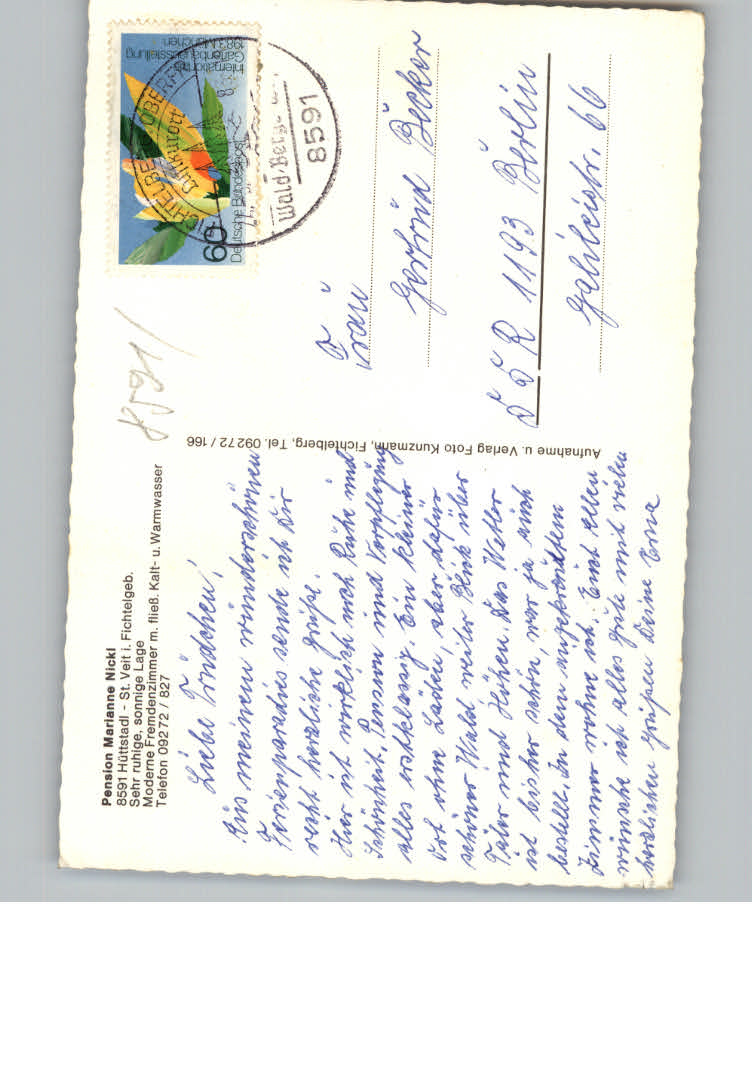 Pension Marianne Nickl
8591 Hüttstadl - St. Veit i. Fichtelgeb.
Sehr ruhige, sonnige Lage
Moderne Fremdenzimmer m. fließ. Kalt- u. Warmwasser
Telefon 09272 / 827
8591/
Liebe Trudchen!
Aus meinem wunderschönen
Ferienparadies sende ich Dir
recht herzliche Grüße.
Hier ist wirklich noch Ruhe und
Schönheit. Pension und Verpflegung
alles erstklassig. Ein kleiner
Ort ohne Läden, aber dafür
schöner Wald weiter Blick über
Täler und Höhen. Das Wetter
ist bisher schön, war ja auch
bestellt. In dem angekreuztem
Zimmer wohne ich. Euch allen
wünsche ich alles Gute mit vielen
herzlichen Grüßen Deine Erna
Aufnahme u. Verlag Foto Kunzmann, Fichtelberg, Tel. 09272 / 166
Internationale
Gartenbauausstellung
1983 München
Deutsche Bundespost
60
FICHTELBERG OBERFR
Luftkurort
Wald · Berge
8591
Frau
Gertrud Becker
DDR 1193 Berlin
Galileistr. 66